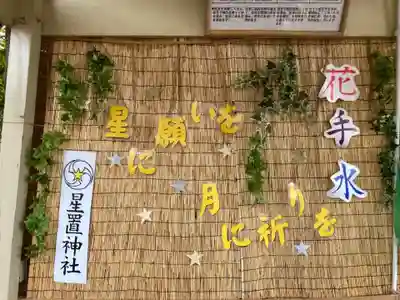 花手水
星に願いを
月に祈りを
星置神社